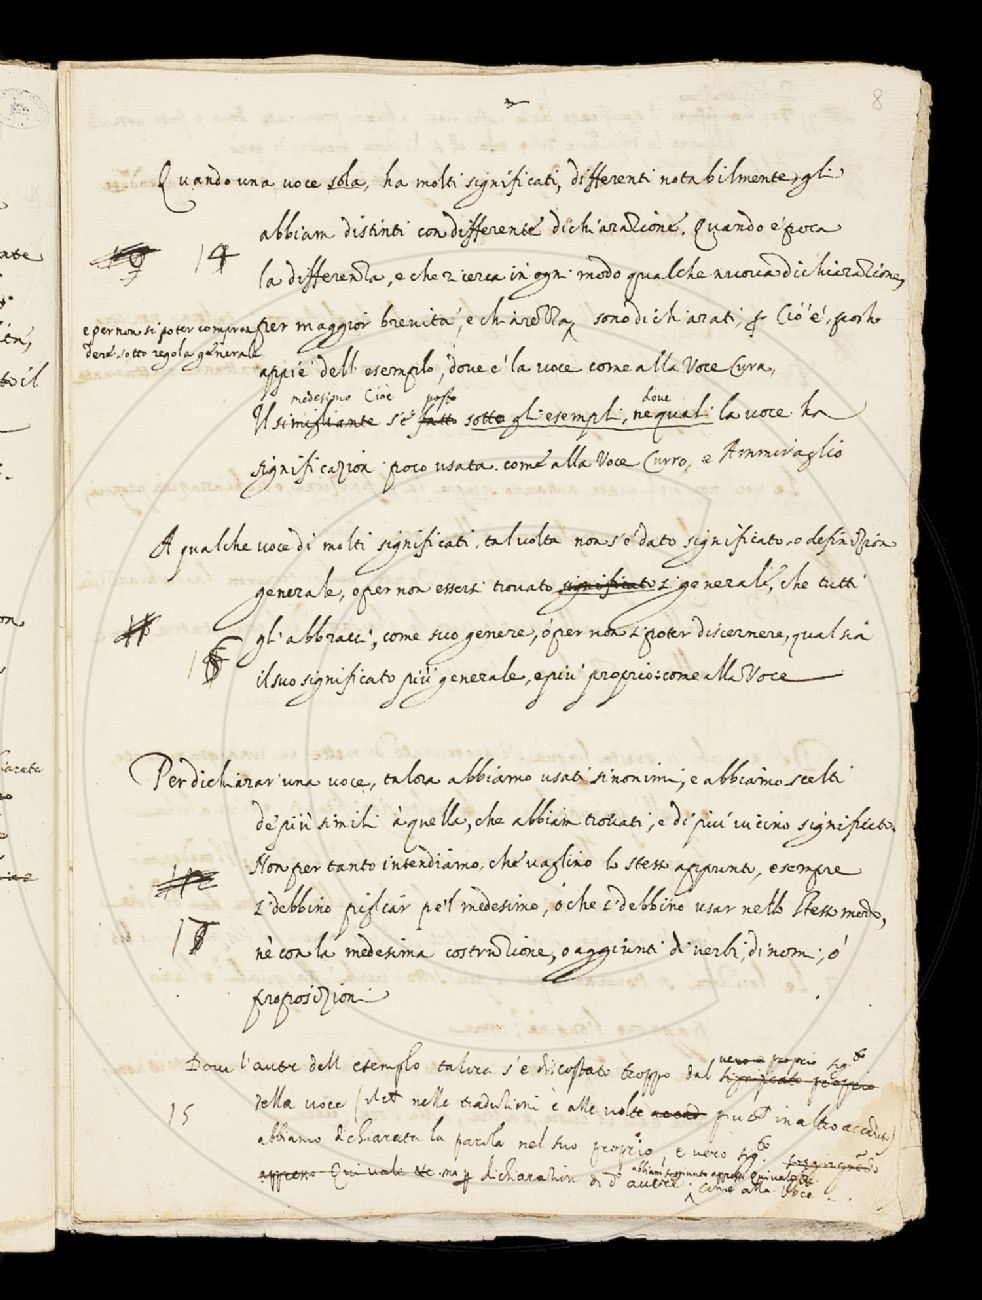 8
Quando una voce sola, ha molti significati, differenti notabilmente, gli
abbiam distinti con differente dichiarazione. Quando è poca
14
la differenza, e che ricerca in ogni modo qualche nuova dichiarazione,
per maggior brevità, e chiarezza, sono dichiarati, Cioè, poch
e per non si poter compren
dere sotto regola generale
appiè dell'esemplo, dove è la voce come alla Voce Cura,
medesimo Cioè posto dove
Il simigliante s'è fatto sotto gli esempli, ne quali la voce ha
significazion poco usata. come alla Voce Curro, e Ammiraglio
A qualche voce di molti significati, talvolta non s'è dato significato, o definizion
generale, o per non essersi trovato significato sì generale, che tutti
gli abbracci, come suo genere, ò per non si poter discernere, qual sia
il suo significato più generale, e più proprio: come alla Voce
Per dichiarar una voce, talora abbiamo usati sinonimi, e abbiamo scelti
de più simili à quella, che abbiam trovati, e di più vicino significato.
Non per tanto intendiamo, che vaglino lo stesso appunto, e sempre
si debbino pigliar pe'l medesimo, ò che si debbino usar nello stesso modo,
17
nè con la medesima costruzione, o aggiunti di verbi, di nomi, ò
proposizioni
Dove l'autre dell esemplo talora s'è discostato troppo dal significato proprio
vero e proprio sig.to
della voce nelle traduzioni e alle volte in altro
15
abbiamo dichiarata la parola nel suo proprio, e vero sig.to
appresso Qui vale etc. ma dichiarazion di autore come alla Voce
abbiam appresso Qui vale